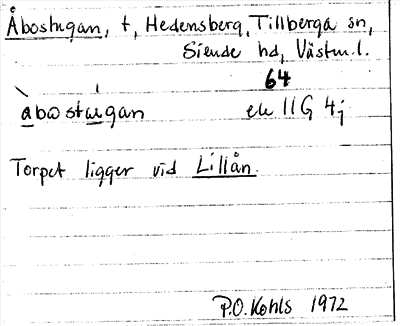 Åbostugan, t, Hedensberg, Tillberga sn,
Siende hd, Västm.l.
64
åbostugan ek 11G 4j
Torpet ligger vid Lillån.
P.O. Kohls 1972